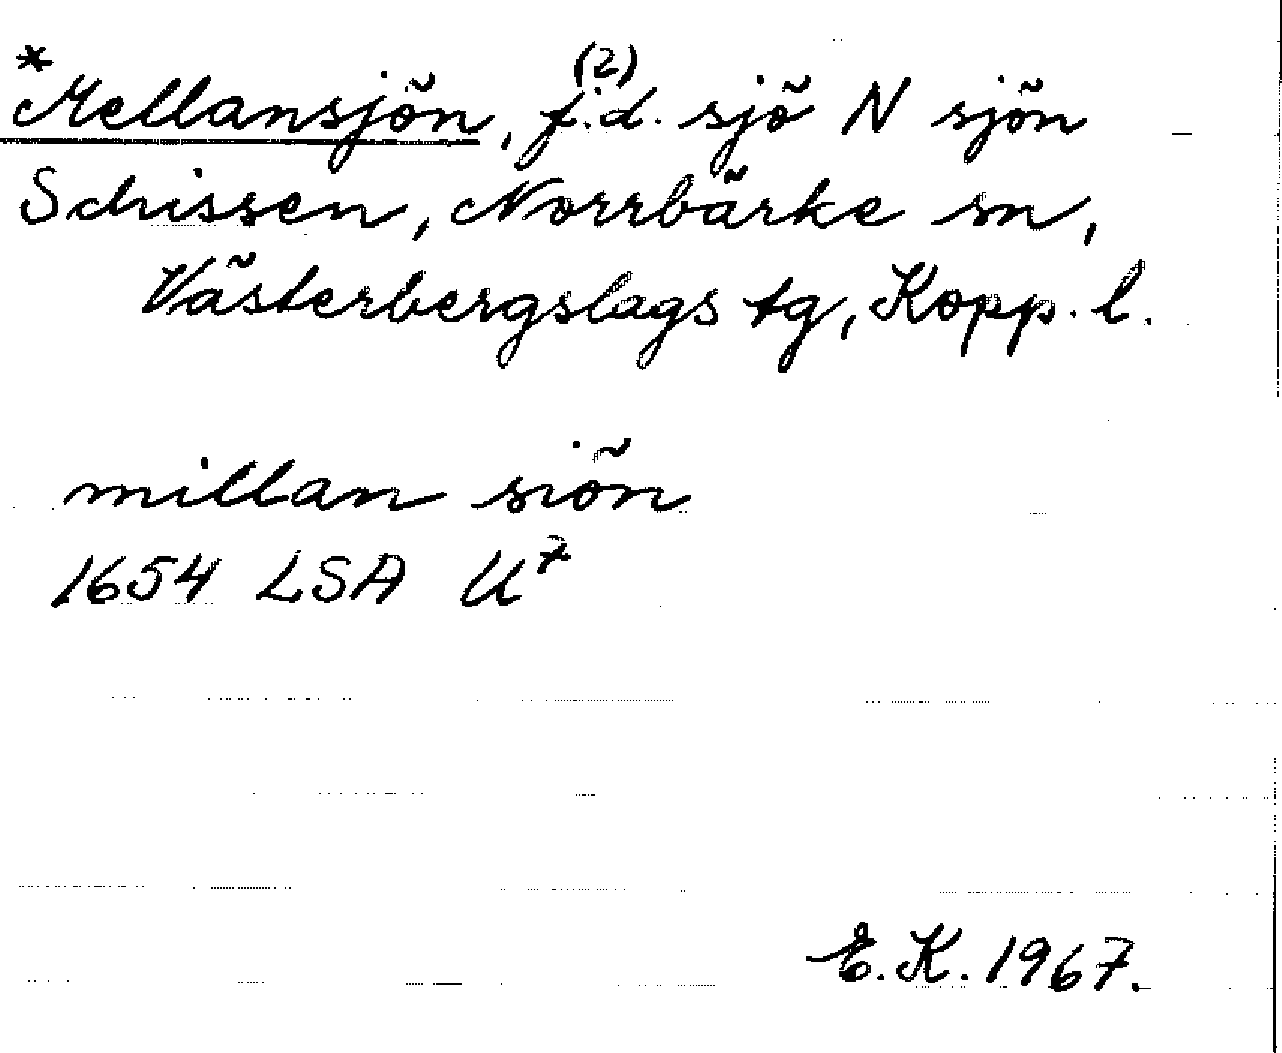 *Mellansjön, (2) f.d. sjö N sjön
Schissen, Norrbärke sn,
Västerbergslags tg, Kopp. l.
millan siön
1654 LSA U⁷
E.K. 1967.